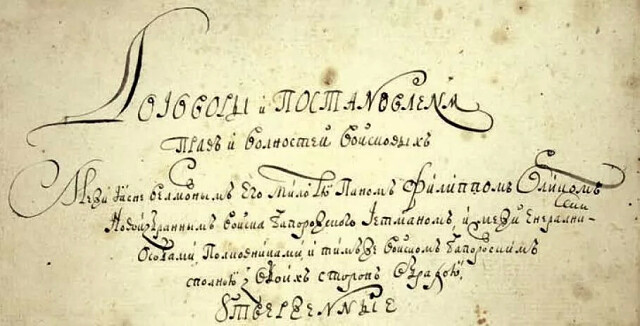 Договоры и Постановленѧ
Правъ и волностей войсковыхъ
Межи Ясне велможнымъ Его милостю Паномъ Филиппомъ Орликомъ
Новоизбраннымъ войска Запорожского Гетманомъ, и межи Енералними
Особами, Полковниками, и тимъ же войскомъ Запорозскимъ
сполною з обоихъ сторонъ обрадою,
Утвержденные